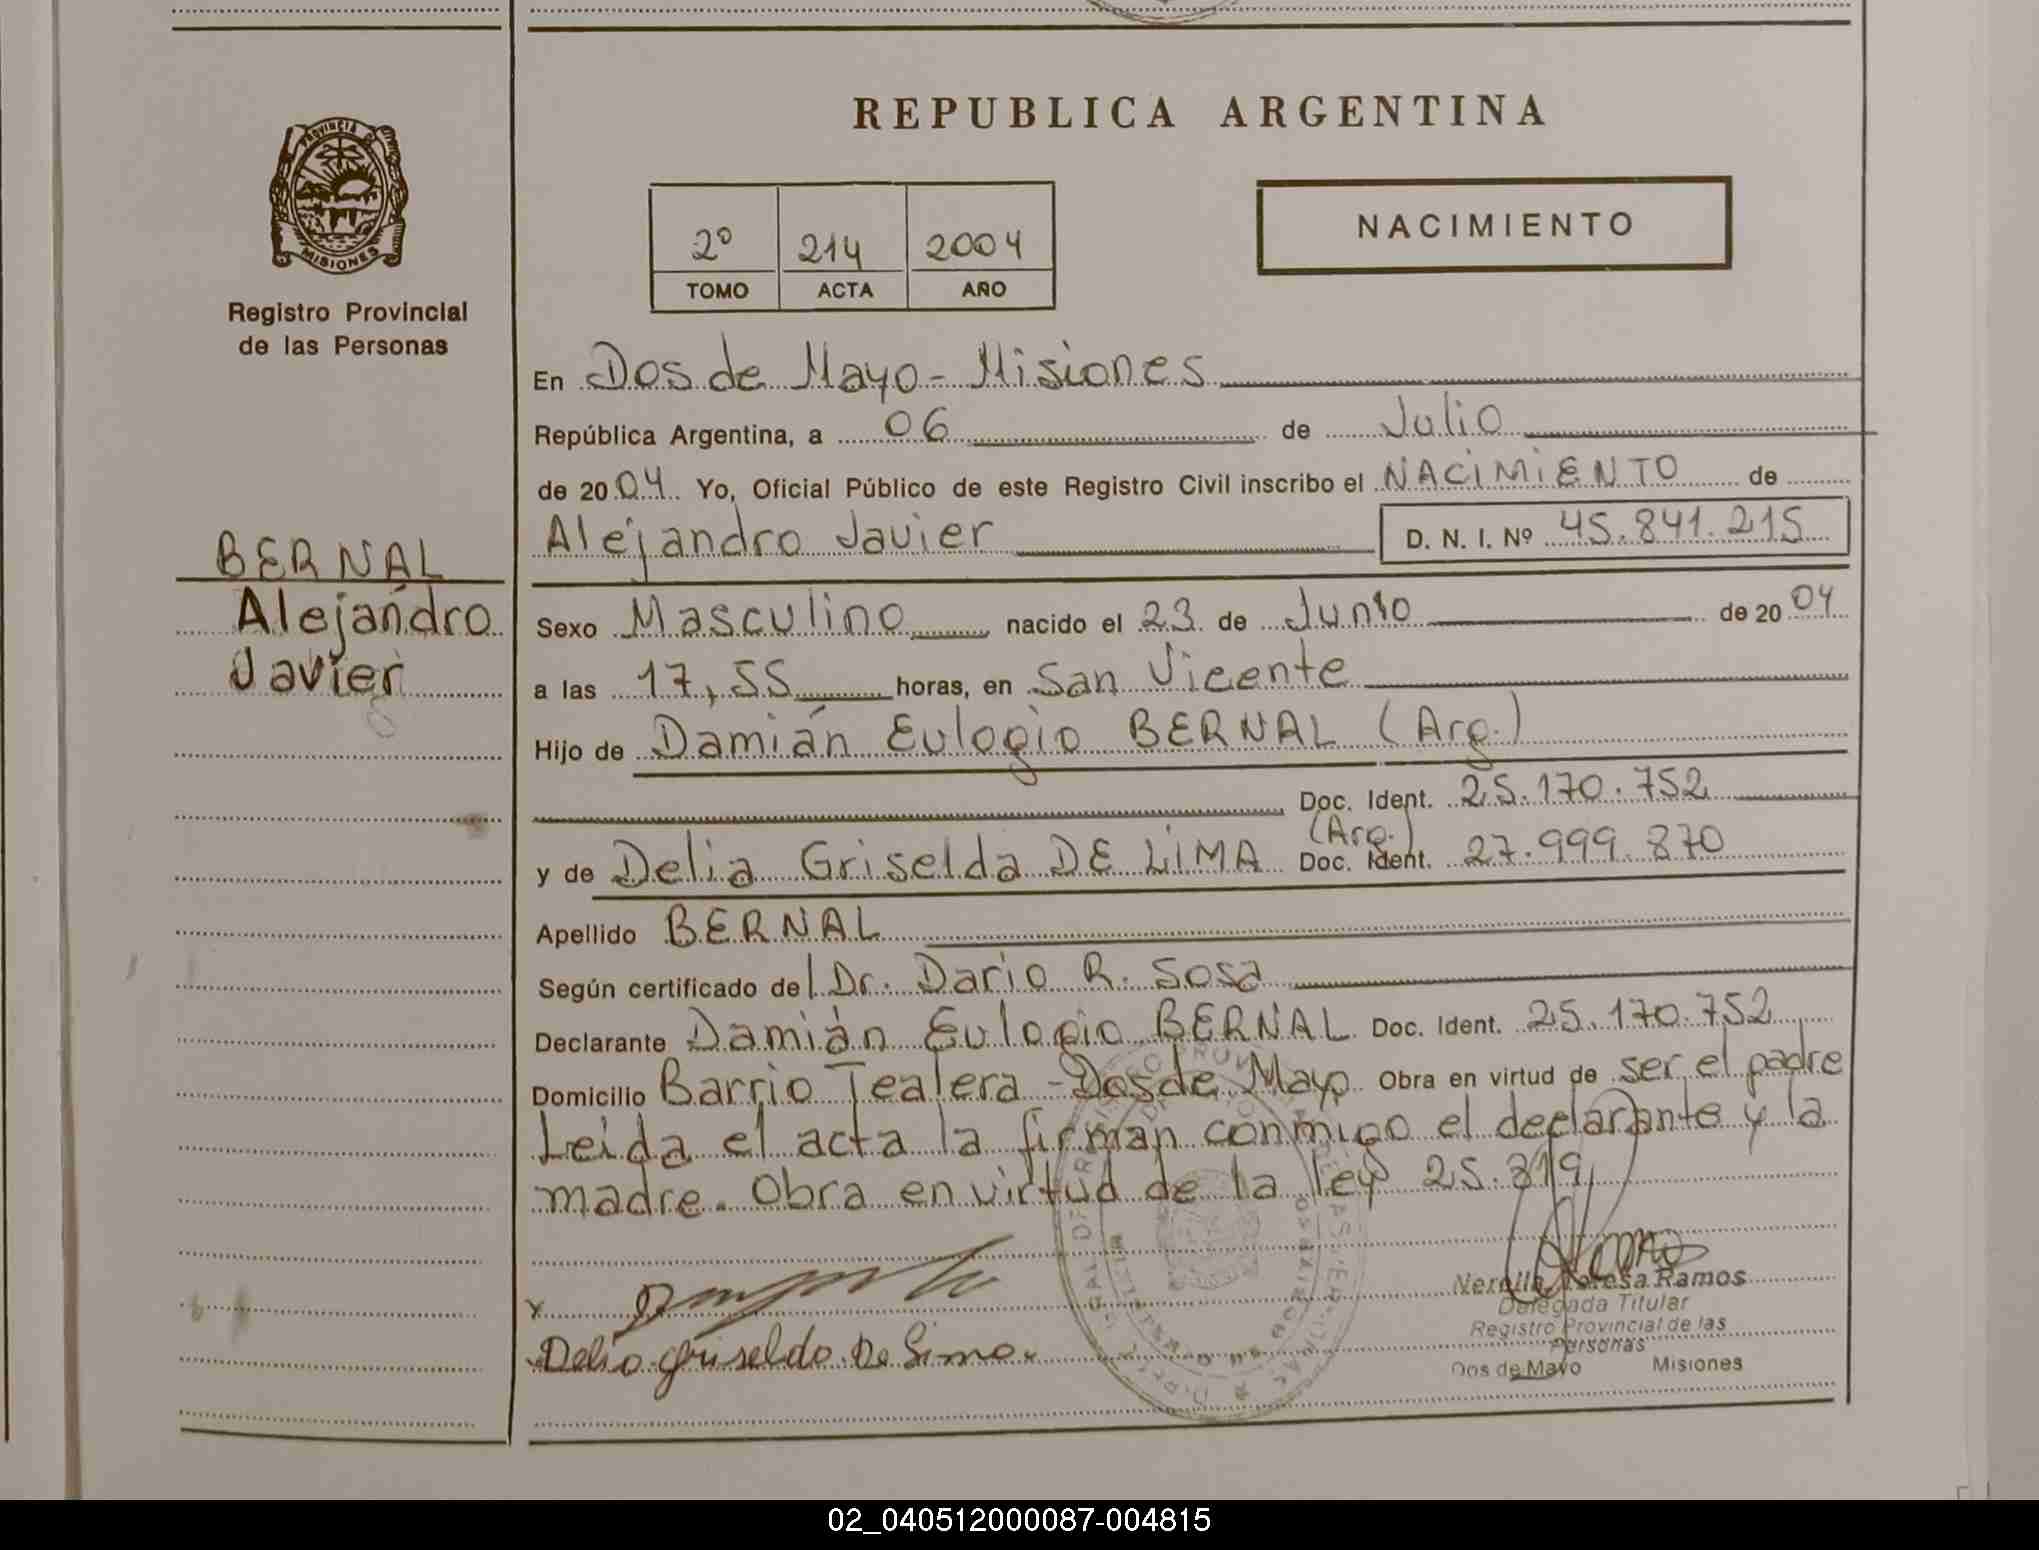 REPUBLICA ARGENTINA
PROVINCIA DE
MISIONES
Registro Provincial
de las Personas
2º 214 2004
TOMO ACTA AÑO
NACIMIENTO
En Dos de Mayo - Misiones
República Argentina, a 06 de Julio
de 2004 Yo, Oficial Público de este Registro Civil inscribo el NACIMIENTO de
Alejandro Javier D. N. I. Nº 45.841.215
BERNAL
Alejandro
Javier
Sexo Masculino nacido el 23 de Junio de 2004
a las 17,55 horas, en San Vicente
Hijo de Damián Eulogio BERNAL (Arg.)
Doc. Ident. 25.170.752
(Arg.)
y de Delia Griselda DE LIMA Doc. Ident. 27.999.870
Apellido BERNAL
Según certificado de Dr. Dario R. Sosa
Declarante Damián Eulogio BERNAL Doc. Ident. 25.170.752
Domicilio Barrio Tealera - Dos de Mayo Obra en virtud de ser el padre
Leida el acta la firman conmigo el declarante y la
madre. Obra en virtud de la ley 25.819
Delia Griselda De Lima
Teresa Ramos
Delegada Titular
Registro Provincial de las
Personas
Dos de Mayo Misiones
02_040512000087-004815